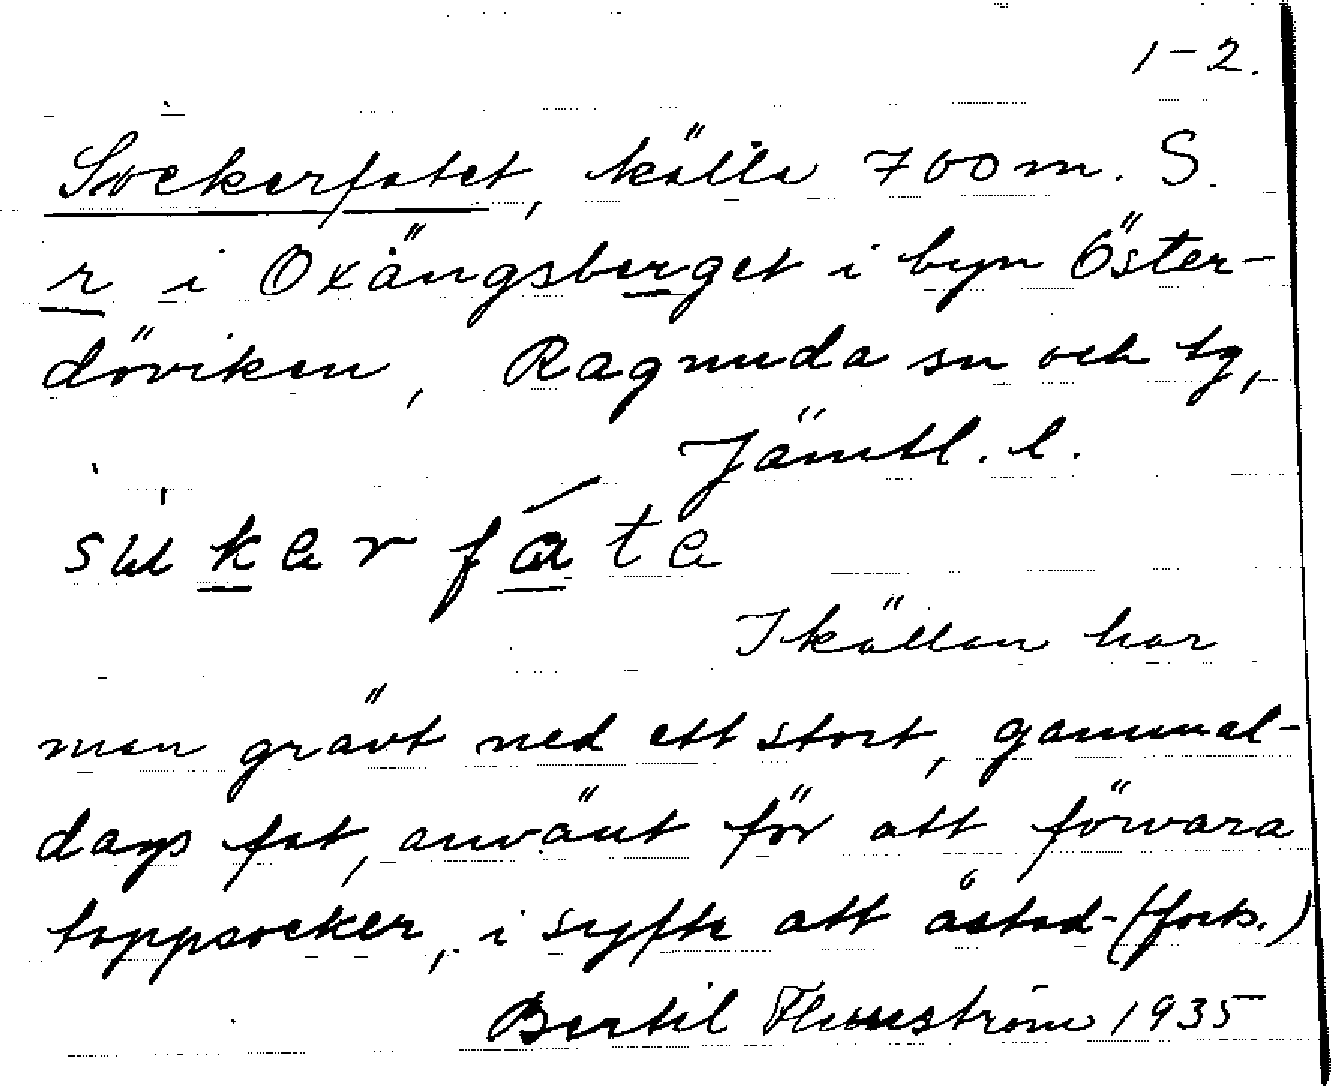 1-2.
Sockerfatet, källa 700 m. S.
r i Oxängsberget i byn Öster-
döviken, Ragunda sn och tg,
Jämtl. l.
I källan har
man grävt ned ett stort, gammal-
dags fat, använt för att förvara
toppsocker, i syfte att åstad-(forts.)
Bertil Flemström 1935